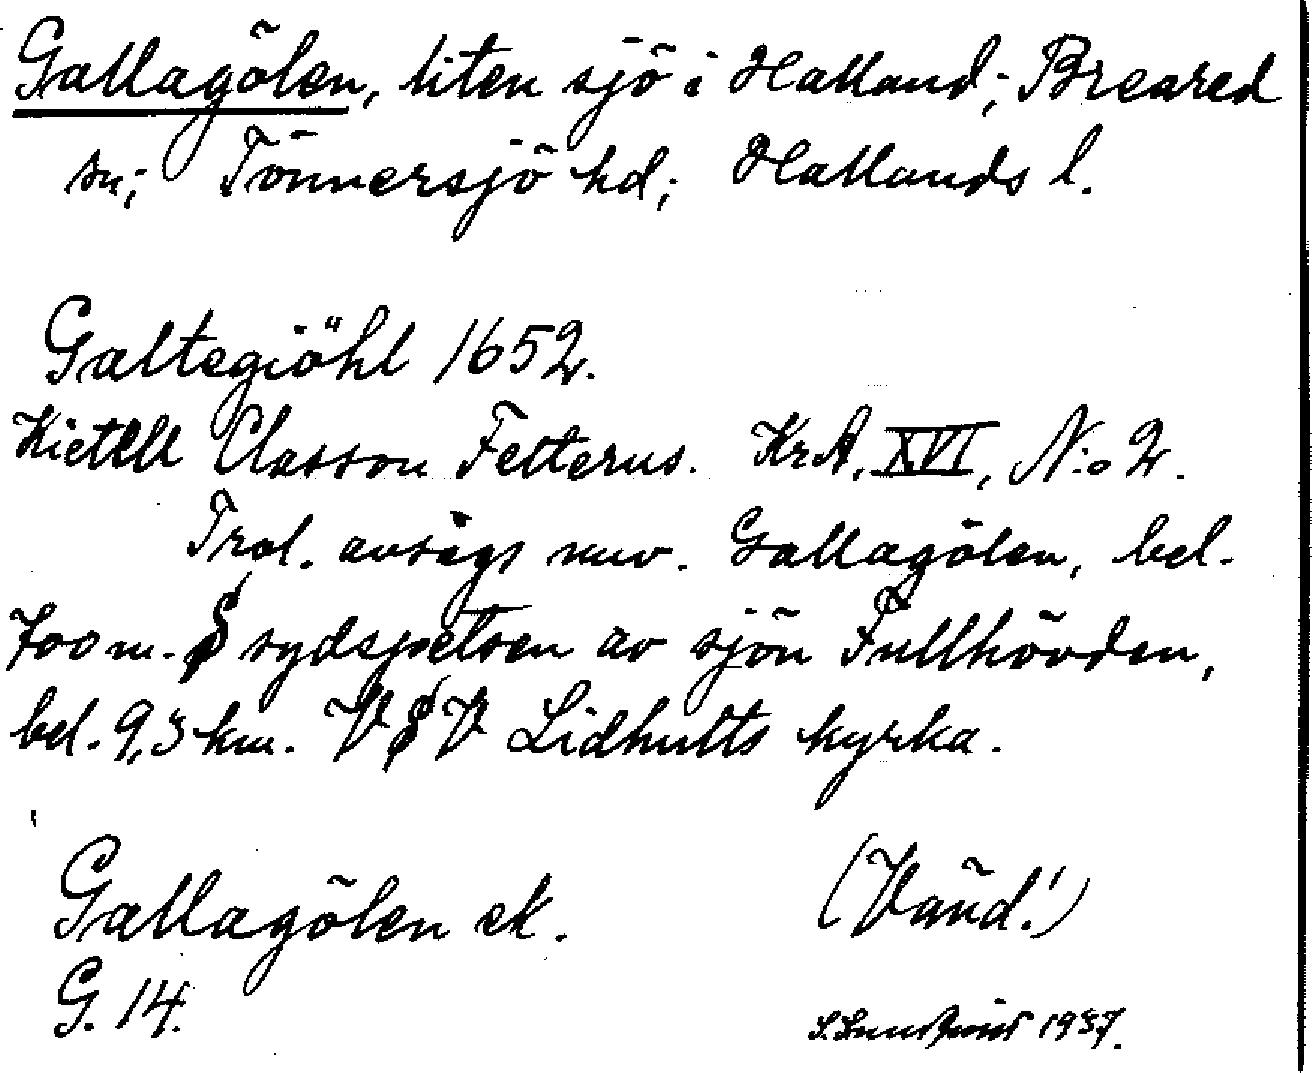 Gallagölen, liten sjö i Halland; Breared
sn; Tönnersjö hd; Hallands l.
Galtegiöhl 1652.
Kietell Classon Felterus. KrA, XVI, N:o 2.
Trol. avsågs nuv. Gallagölen, bel.
700 m. S sydspetsen av sjön Fullhövden,
bel. 9,3 km. VSV Lidhults kyrka.
Gallagölen ek.
(Vänd!)
G. 14.
S. Lundqvist 1937.